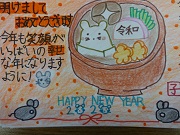 明けまして
おめでとうございます
今年も笑顔が
いっぱいの幸せ
な年になります
ように!
令和
子
HAPPY NEW YEAR
2020